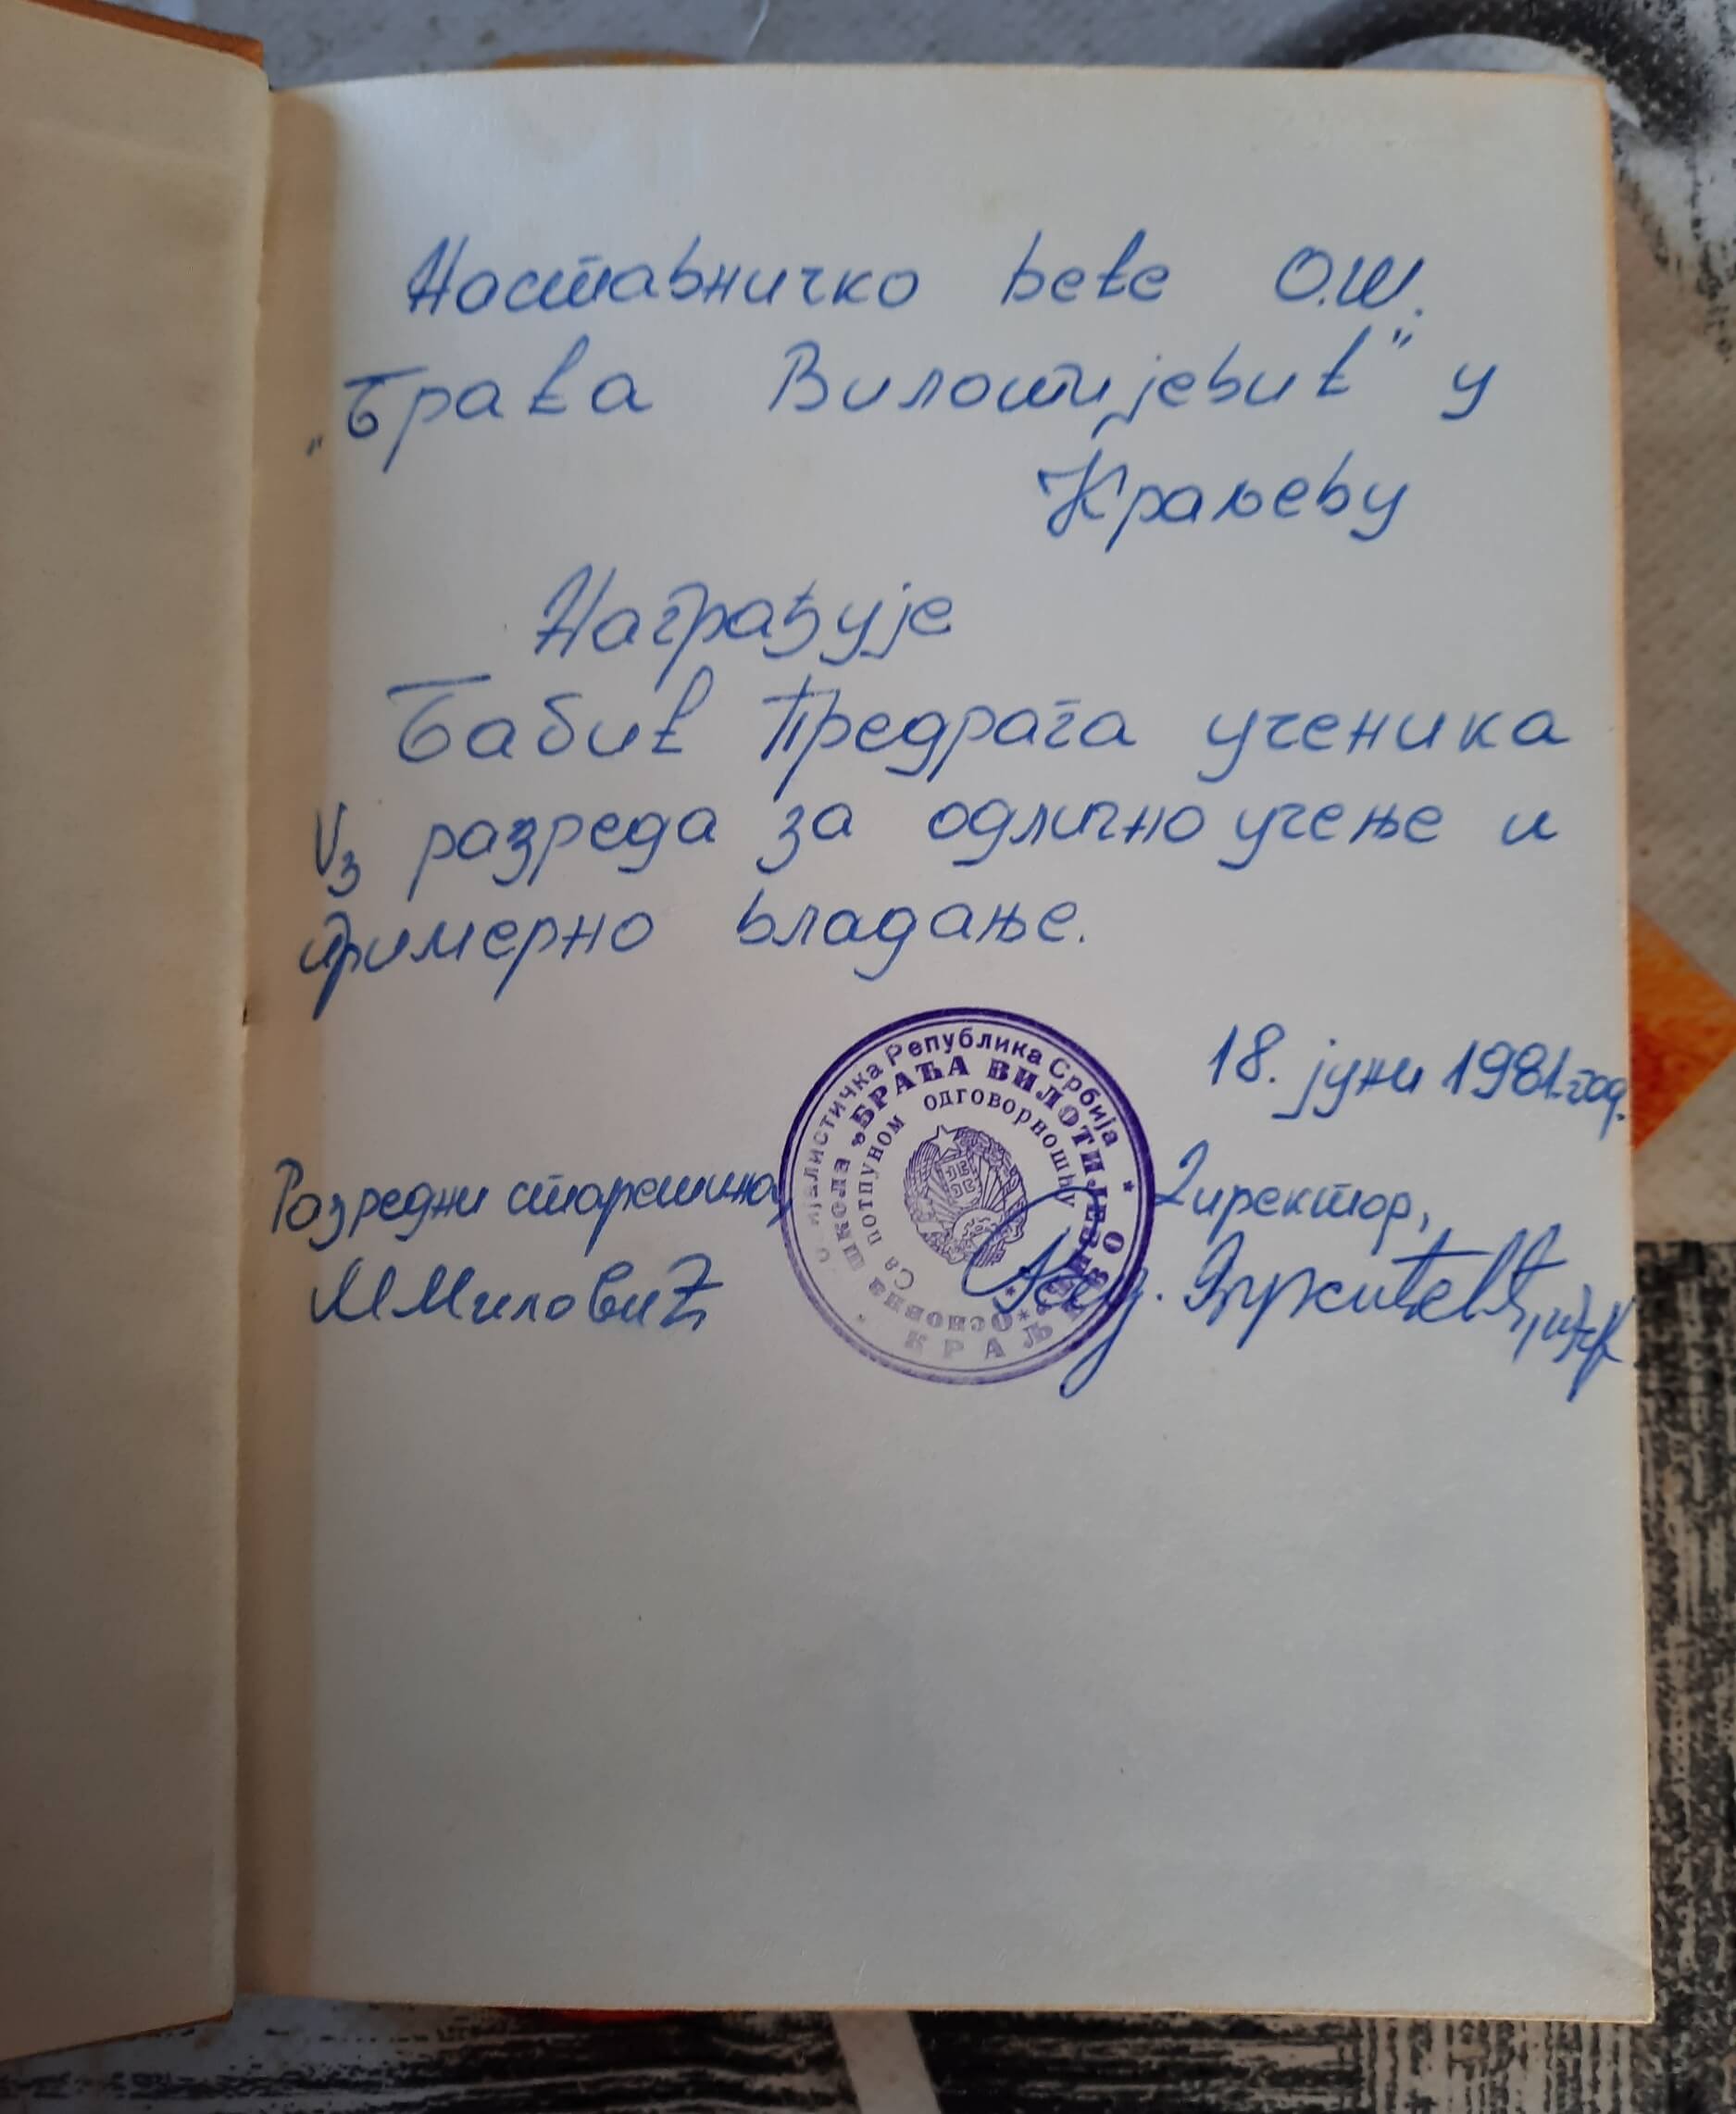 Наставничко веће О.Ш.
„Браћа Вилотијевић" у
Краљеву
Награђује
Бабић Предрага ученика
V3 разреда за одлично учење и
примерно владање.
18. јуни 1981.год.
Разредни старешина,
Директор,
ММиловић
Социјалистичка Република Србија *
Основна школа „БРАЋА ВИЛОТИЈЕВИЋ" *
Са потпуном одговорношћу
КРАЉЕВО